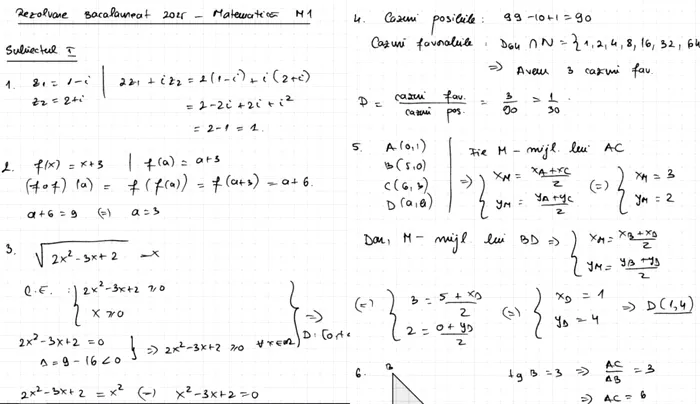 Rezolvare Bacalaureat 2025 - Matematica M1
Subiectul I
1. z₁ = 1-i | 2z₁ + iz₂ = 2(1-i) + i(2+i)
z₂ = 2+i
= 2-2i+2i+i²
= 2-1 = 1.
2. f(x) = x+3 | f(a) = a+3
(f∘f)(a) = f(f(a)) = f(a+3) = a+6.
a+6 = 9 (=) a=3
3. √(2x²-3x+2) = x
C.E. : { 2x²-3x+2 ≥0
x ≥0
2x²-3x+2 = 0
Δ = 9-16 <0 } => 2x²-3x+2 ≥0 ∀x∈ℝ } => D: [0,+
2x²-3x+2 = x² (=) x²-3x+2 = 0
4. Cazuri posibile: 99-10+1 = 90
Cazuri favorabile: D64 ∩ N = {1, 2, 4, 8, 16, 32, 64
=> Avem 3 cazuri fav.
P = cazuri fav. / cazuri pos. = 3/90 = 1/30.
5. A(0,1)
B(5,0)
C(6,3)
D(a,b)
Fie M - mijl. lui AC
=> { xM = (xA+xC)/2 (=) { xM = 3
yM = (yA+yC)/2 yM = 2
Dar, M - mijl lui BD => { xM = (xB+xD)/2
yM = (yB+yD)/2
(=) { 3 = (5+xD)/2 (=) { xD = 1 => D(1,4)
2 = (0+yD)/2 yD = 4
6. tg B = 3 => AC/AB = 3
=> AC = 6